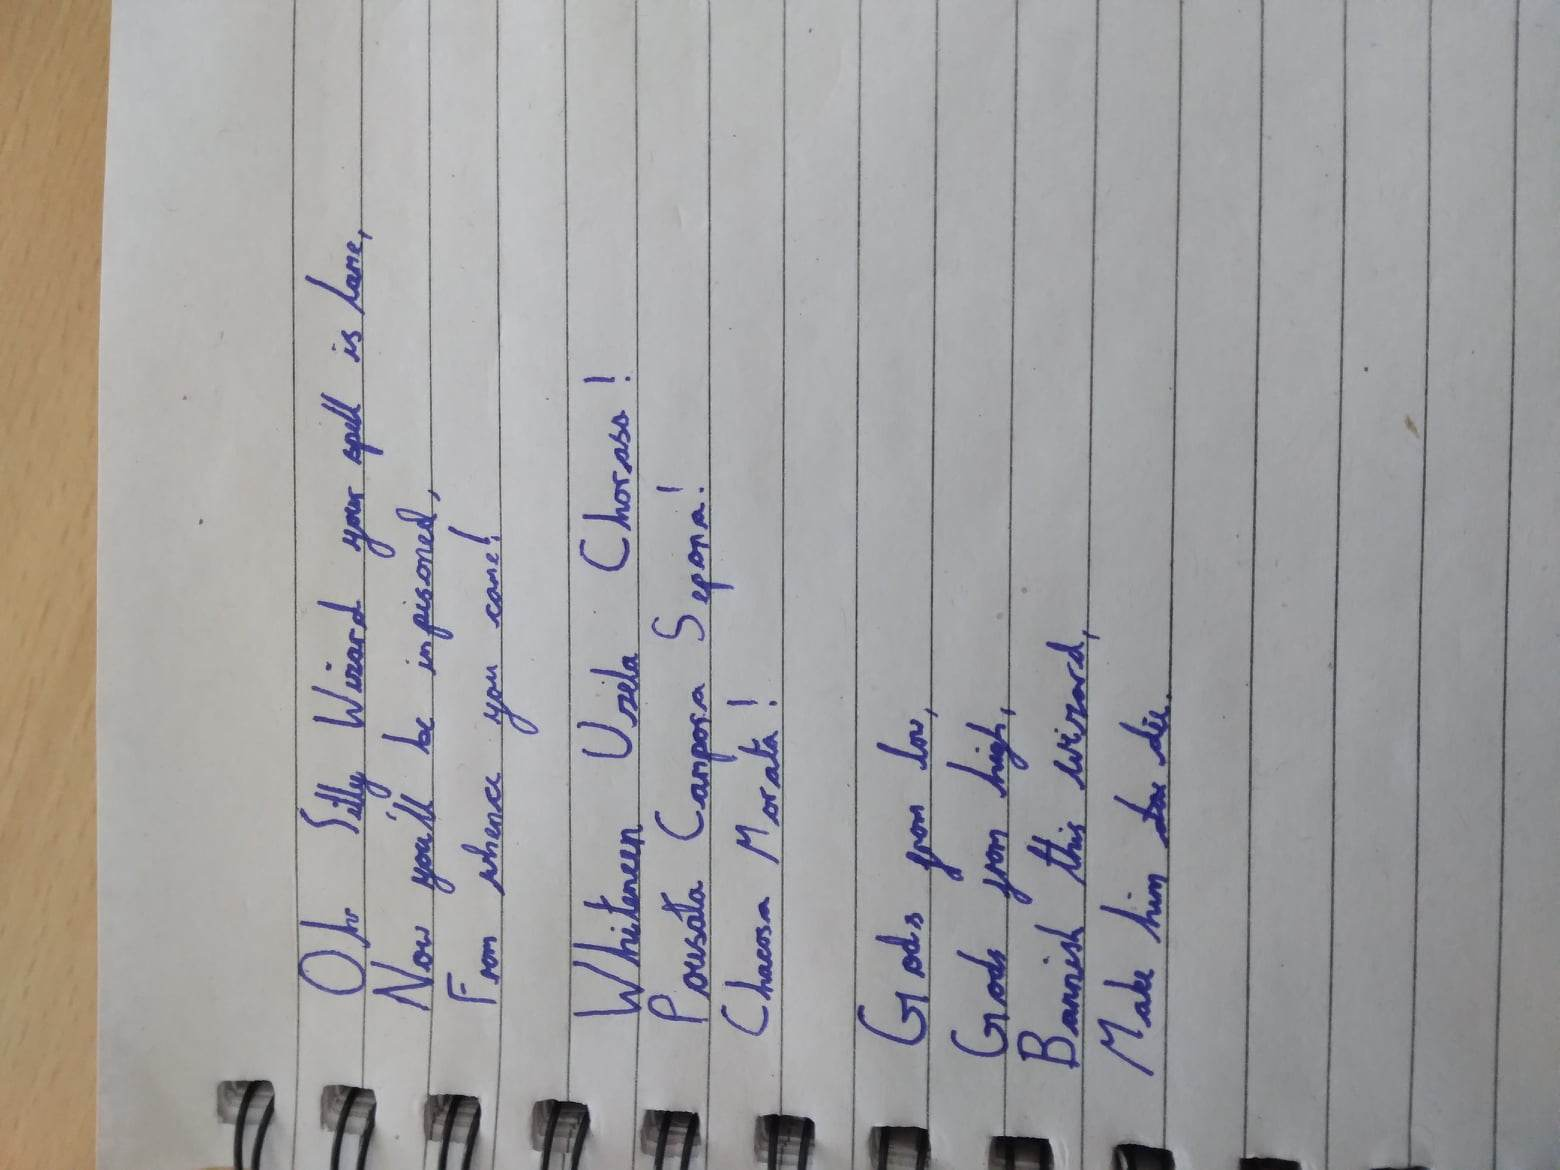 Oh Silly Wizard your spell is lame,
Now you'll be inpisoned,
From whence you came!
Whiteneen Uzela Chorass!
Pousata Campora Sepona!
Chacosa Morata!
Gods from low,
Gods from high,
Bannish this wizard,
Make him die.